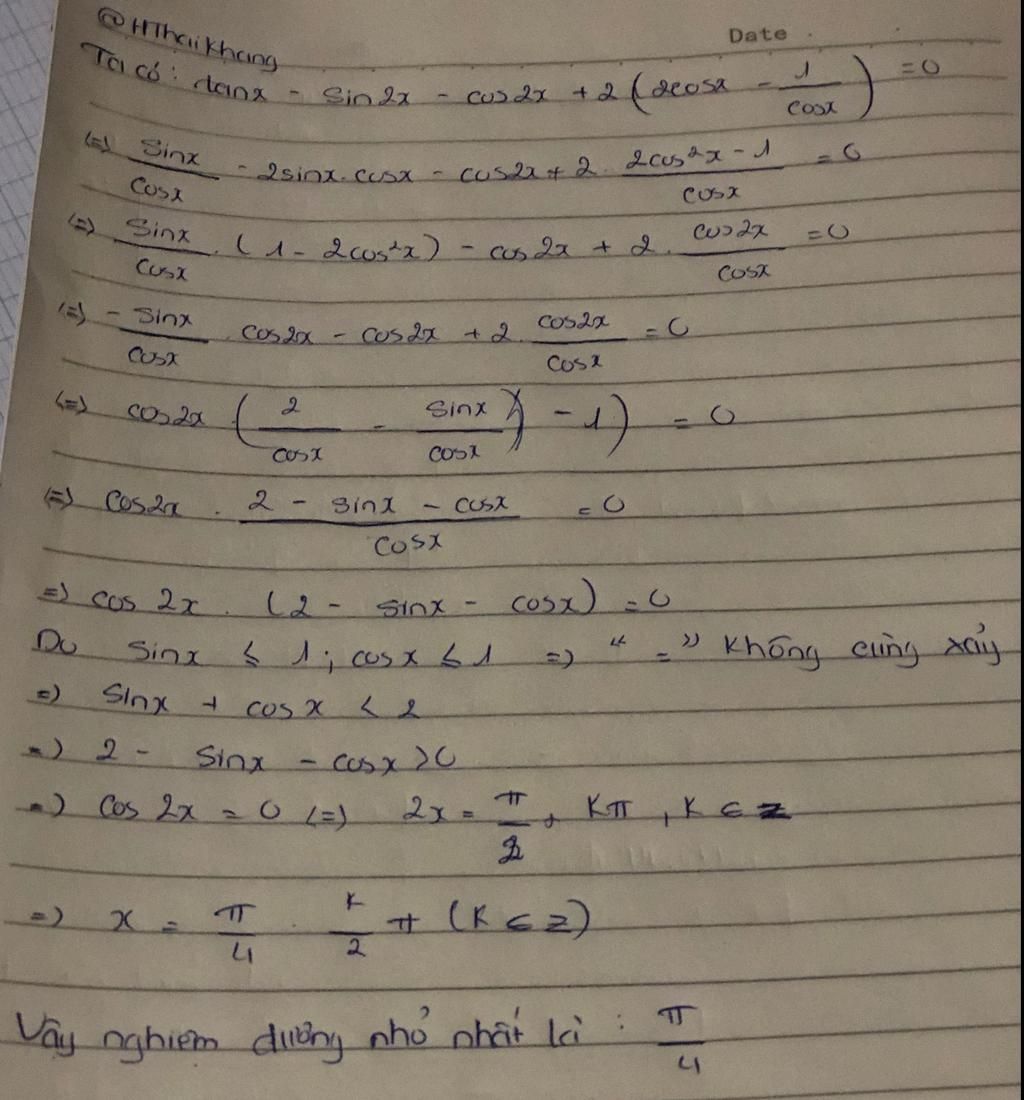 @HThaiKhang
Date
Ta có: tanx - sin2x - cos2x + 2(2cosx - 1/cosx) = 0
(=) sinx/cosx - 2sinx.cosx - cos2x + 2. (2cos²x - 1)/cosx = 0
(=) sinx/cosx . (1 - 2cos²x) - cos2x + 2. cos2x/cosx = 0
(=) -sinx/cosx . cos2x - cos2x + 2. cos2x/cosx = 0
(=) cos2x (2/cosx - sinx/cosx - 1) = 0
(=) cos2x . (2 - sinx - cosx)/cosx = 0
=) cos 2x . (2 - sinx - cosx) = 0
Do sinx ≤ 1; cosx ≤ 1 =) "=" không cùng xảy
=) sinx + cosx < 2
=) 2 - sinx - cosx > 0
=) cos 2x = 0 (=) 2x = π/2 + Kπ, K ∈ Z
=) x = π/4 . K/2 π (K ∈ Z)
Vậy nghiệm dương nhỏ nhất là : π/4